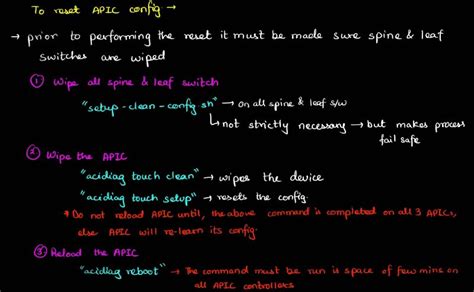 To reset APIC config →
→ prior to performing the reset it must be made sure spine & leaf
switches are wiped
① Wipe all spine & leaf switch
"setup-clean-config.sh" → on all spine & leaf s/w
↳ not strictly necessary → but makes process
fail safe
② Wipe the APIC
"acidiag touch clean" → wipes the device
"acidiag touch setup" → resets the config.
* Do not reload APIC until, the above command is completed on all 3 APICs,
else APIC will re-learn its config.
③ Reload the APIC
"acidiag reboot" → The command must be run is space of few mins on
all APIC controllers